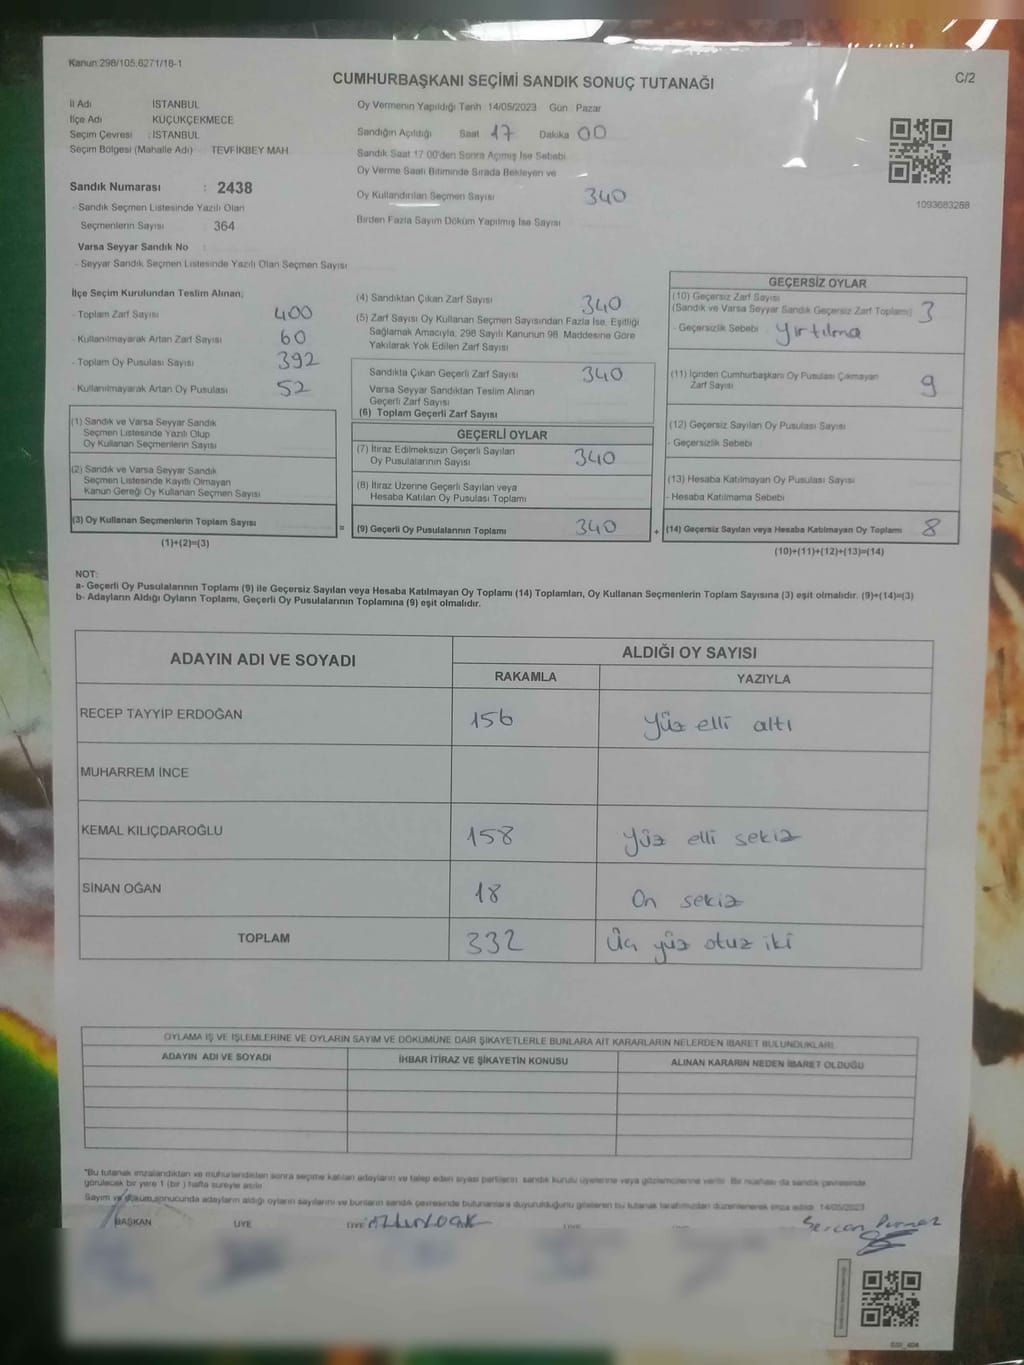 Kanun:298/105,6271/18-1
C/2
CUMHURBAŞKANI SEÇİMİ SANDIK SONUÇ TUTANAĞI
İl Adı İSTANBUL
İlçe Adı KÜÇÜKÇEKMECE
Seçim Çevresi : İSTANBUL
Seçim Bölgesi (Mahalle Adı) TEVFİKBEY MAH.
Sandık Numarası : 2438
- Sandık Seçmen Listesinde Yazılı Olan
Seçmenlerin Sayısı 364
Varsa Seyyar Sandık No :
- Seyyar Sandık Seçmen Listesinde Yazılı Olan Seçmen Sayısı
Oy Vermenin Yapıldığı Tarih 14/05/2023 Gün Pazar
Sandığın Açıldığı Saat 17 Dakika 00
Sandık Saat 17:00'den Sonra Açmış İse Sebebi
Oy Verme Saati Bitiminde Sırada Bekleyen ve
Oy Kullandırılan Seçmen Sayısı 340
Birden Fazla Sayım Döküm Yapılmış İse Sayısı
1093683288
İlçe Seçim Kurulundan Teslim Alınan;
- Toplam Zarf Sayısı 400
- Kullanılmayarak Artan Zarf Sayısı 60
- Toplam Oy Pusulası Sayısı 392
- Kullanılmayarak Artan Oy Pusulası 52
(1) Sandık ve Varsa Seyyar Sandık
Seçmen Listesinde Yazılı Olup
Oy Kullanan Seçmenlerin Sayısı
(2) Sandık ve Varsa Seyyar Sandık
Seçmen Listesinde Kayıtlı Olmayan
Kanun Gereği Oy Kullanan Seçmen Sayısı
(3) Oy Kullanan Seçmenlerin Toplam Sayısı
(1)+(2)=(3)
=
(4) Sandıktan Çıkan Zarf Sayısı 340
(5) Zarf Sayısı Oy Kullanan Seçmen Sayısından Fazla İse, Eşitliği
Sağlamak Amacıyla, 298 Sayılı Kanunun 98. Maddesine Göre
Yakılarak Yok Edilen Zarf Sayısı
Sandıkta Çıkan Geçerli Zarf Sayısı 340
Varsa Seyyar Sandıktan Teslim Alınan
Geçerli Zarf Sayısı
(6) Toplam Geçerli Zarf Sayısı
GEÇERLİ OYLAR
(7) İtiraz Edilmeksizin Geçerli Sayılan
Oy Pusulalarının Sayısı 340
(8) İtiraz Üzerine Geçerli Sayılan veya
Hesaba Katılan Oy Pusulası Toplamı
(9) Geçerli Oy Pusulalarının Toplamı 340
+
GEÇERSİZ OYLAR
(10) Geçersiz Zarf Sayısı
(Sandık ve Varsa Seyyar Sandık Geçersiz Zarf Toplamı) 3
- Geçersizlik Sebebi yırtılma
(11) İçinden Cumhurbaşkanı Oy Pusulası Çıkmayan
Zarf Sayısı 9
(12) Geçersiz Sayılan Oy Pusulası Sayısı
- Geçersizlik Sebebi
(13) Hesaba Katılmayan Oy Pusulası Sayısı
- Hesaba Katılmama Sebebi
(14) Geçersiz Sayılan veya Hesaba Katılmayan Oy Toplamı 8
(10)+(11)+(12)+(13)=(14)
NOT:
a- Geçerli Oy Pusulalarının Toplamı (9) ile Geçersiz Sayılan veya Hesaba Katılmayan Oy Toplamı (14) Toplamları, Oy Kullanan Seçmenlerin Toplam Sayısına (3) eşit olmalıdır. (9)+(14)=(3)
b- Adayların Aldığı Oyların Toplamı, Geçerli Oy Pusulalarının Toplamına (9) eşit olmalıdır.
ADAYIN ADI VE SOYADI
ALDIĞI OY SAYISI
RAKAMLA YAZIYLA
RECEP TAYYİP ERDOĞAN 156 yüz elli altı
MUHARREM İNCE
KEMAL KILIÇDAROĞLU 158 yüz elli sekiz
SİNAN OĞAN 18 On sekiz
TOPLAM 332 Üç yüz otuz iki
OYLAMA İŞ VE İŞLEMLERİNE VE OYLARIN SAYIM VE DÖKÜMÜNE DAİR ŞİKAYETLERLE BUNLARA AİT KARARLARIN NELERDEN İBARET BULUNDUKLARI
ADAYIN ADI VE SOYADI İHBAR İTİRAZ VE ŞİKAYETİN KONUSU ALINAN KARARIN NEDEN İBARET OLDUĞU
*Bu tutanak imzalandıktan ve mühürlendikten sonra seçime katılan adayların ve talep eden siyasi partilerin sandık kurulu üyelerine veya gözlemcilerine verilir. Bir nüshası da sandık çevresinde
görülecek bir yere 1 (bir) hafta süreyle asılır.
Sayım ve döküm sonucunda adayların aldığı oyların sayılarını ve bunların sandık çevresinde bulunanlara duyurulduğunu gösteren bu tutanak tarafımızdan düzenlenerek imza edildi. 14/05/2023
BAŞKAN ÜYE ÜYE
Sercan